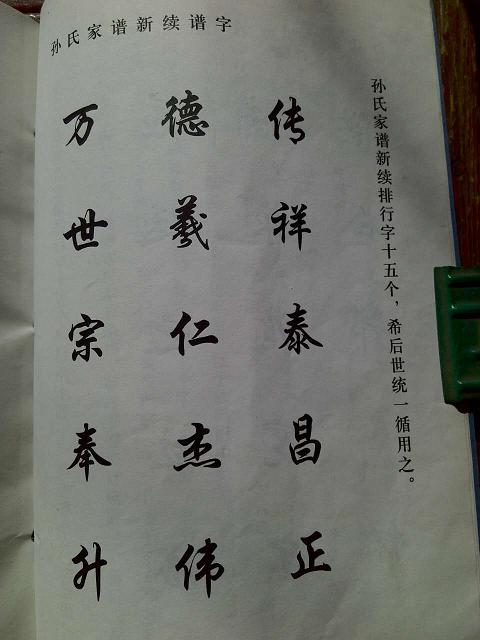 孙氏家谱新续谱字
孙氏家谱新续排行字十五个，希后世统一循用之。
传祥泰昌正
德羲仁杰伟
万世宗奉升